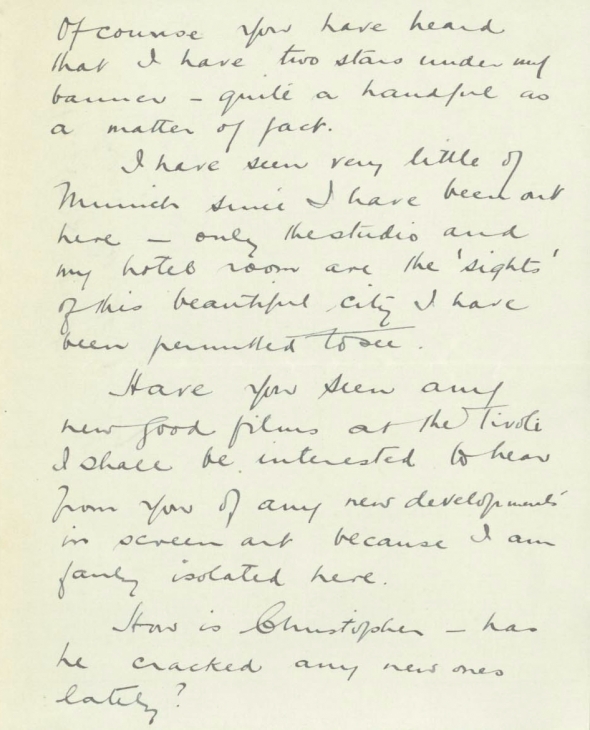 Of course you have heard
that I have two stars under my
banner – quite a handful as
a matter of fact.
I have seen very little of
Munich since I have been out
here – only the studio and
my hotel room are the 'sights'
of this beautiful city I have
been permitted to see.
Have you seen any
new good films at the Tivoli
I shall be interested to hear
from you of any new developments
in screen art because I am
fairly isolated here.
How is Christopher – has
he cracked any new ones
lately?